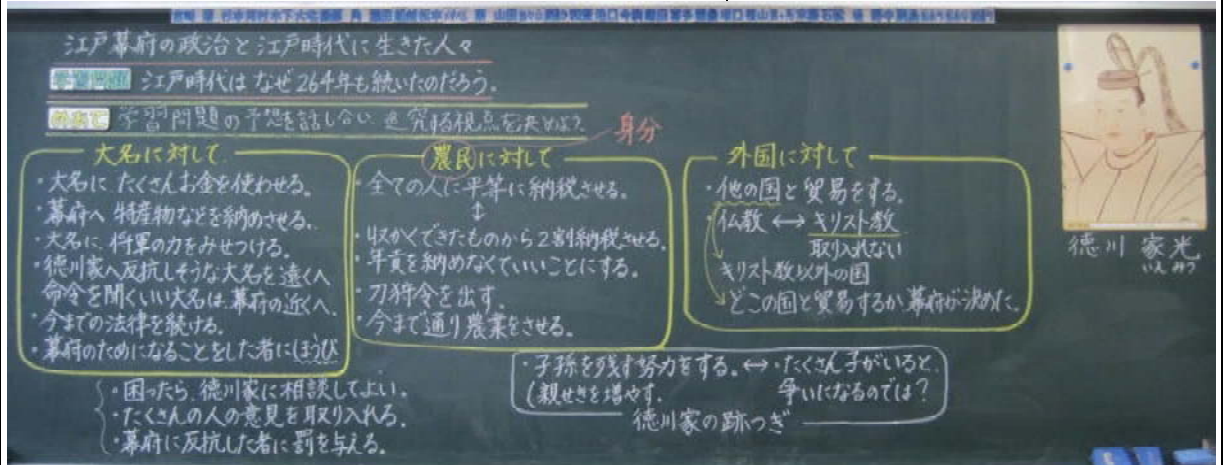 江戸幕府の政治と江戸時代に生きた人々
学習問題 江戸時代はなぜ264年も続いたのだろう。
めあて 学習問題の予想を話し合い、追究する視点を決めよう。
身分
大名に対して
・大名にたくさんお金を使わせる。
・幕府へ特産物などを納めさせる。
・大名に、将軍の力をみせつける。
・徳川家へ反抗しそうな大名を遠くへ
命令を聞くいい大名は、幕府の近くへ。
・今までの法律を続ける。
・幕府のためになることをした者にほうび
・困ったら、徳川家に相談してよい。
・たくさんの人の意見を取り入れる。
・幕府に反抗した者に罰を与える。
農民に対して
・全ての人に平等に納税させる。
↕
・収かくできたものから2割納税させる。
・年貢を納めなくていいことにする。
・刀狩令を出す。
・今まで通り農業をさせる。
外国に対して
・他の国と貿易をする。
・仏教 ↔ キリスト教
取り入れない
キリスト教以外の国
どこの国と貿易するか幕府が決めた。
・子孫を残す努力をする。↔・たくさん子がいると、
(親せきを増やす. 争いになるのでは?
徳川家の跡つぎ
徳川 家光
いえ みつ